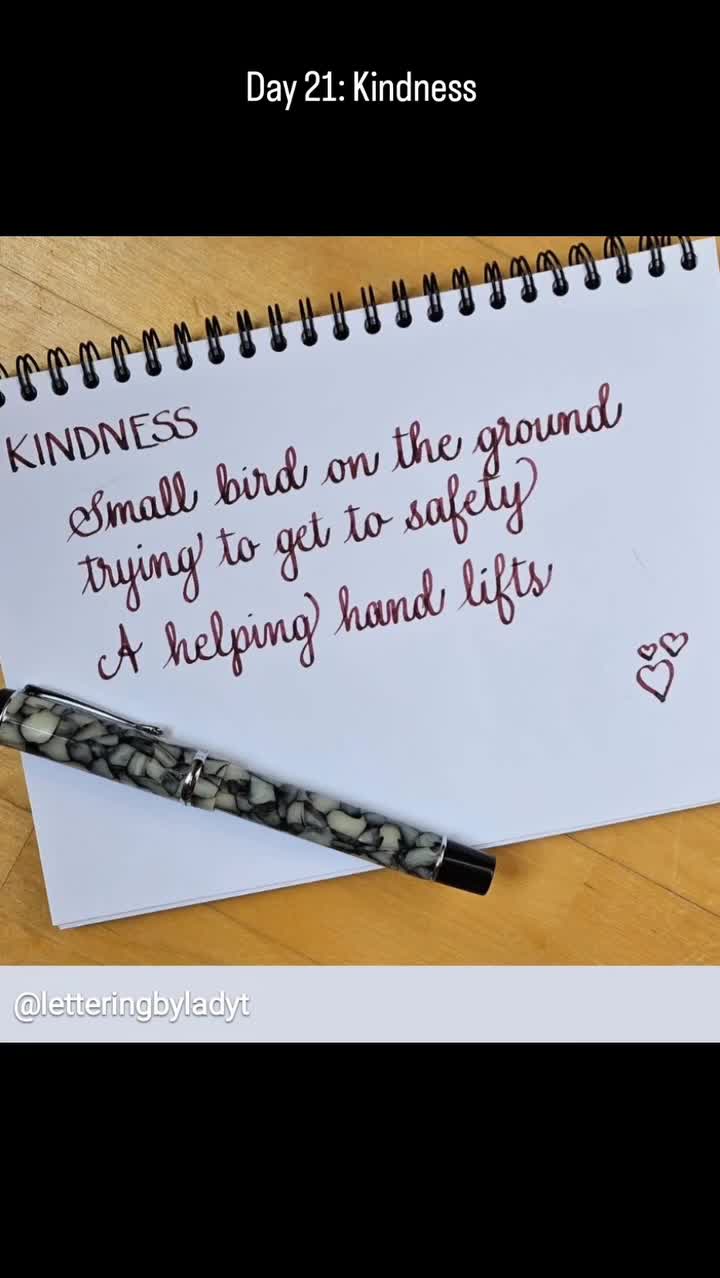 Day 21: Kindness
KINDNESS
Small bird on the ground
trying to get to safety
A helping hand lifts
@letteringbyladyt